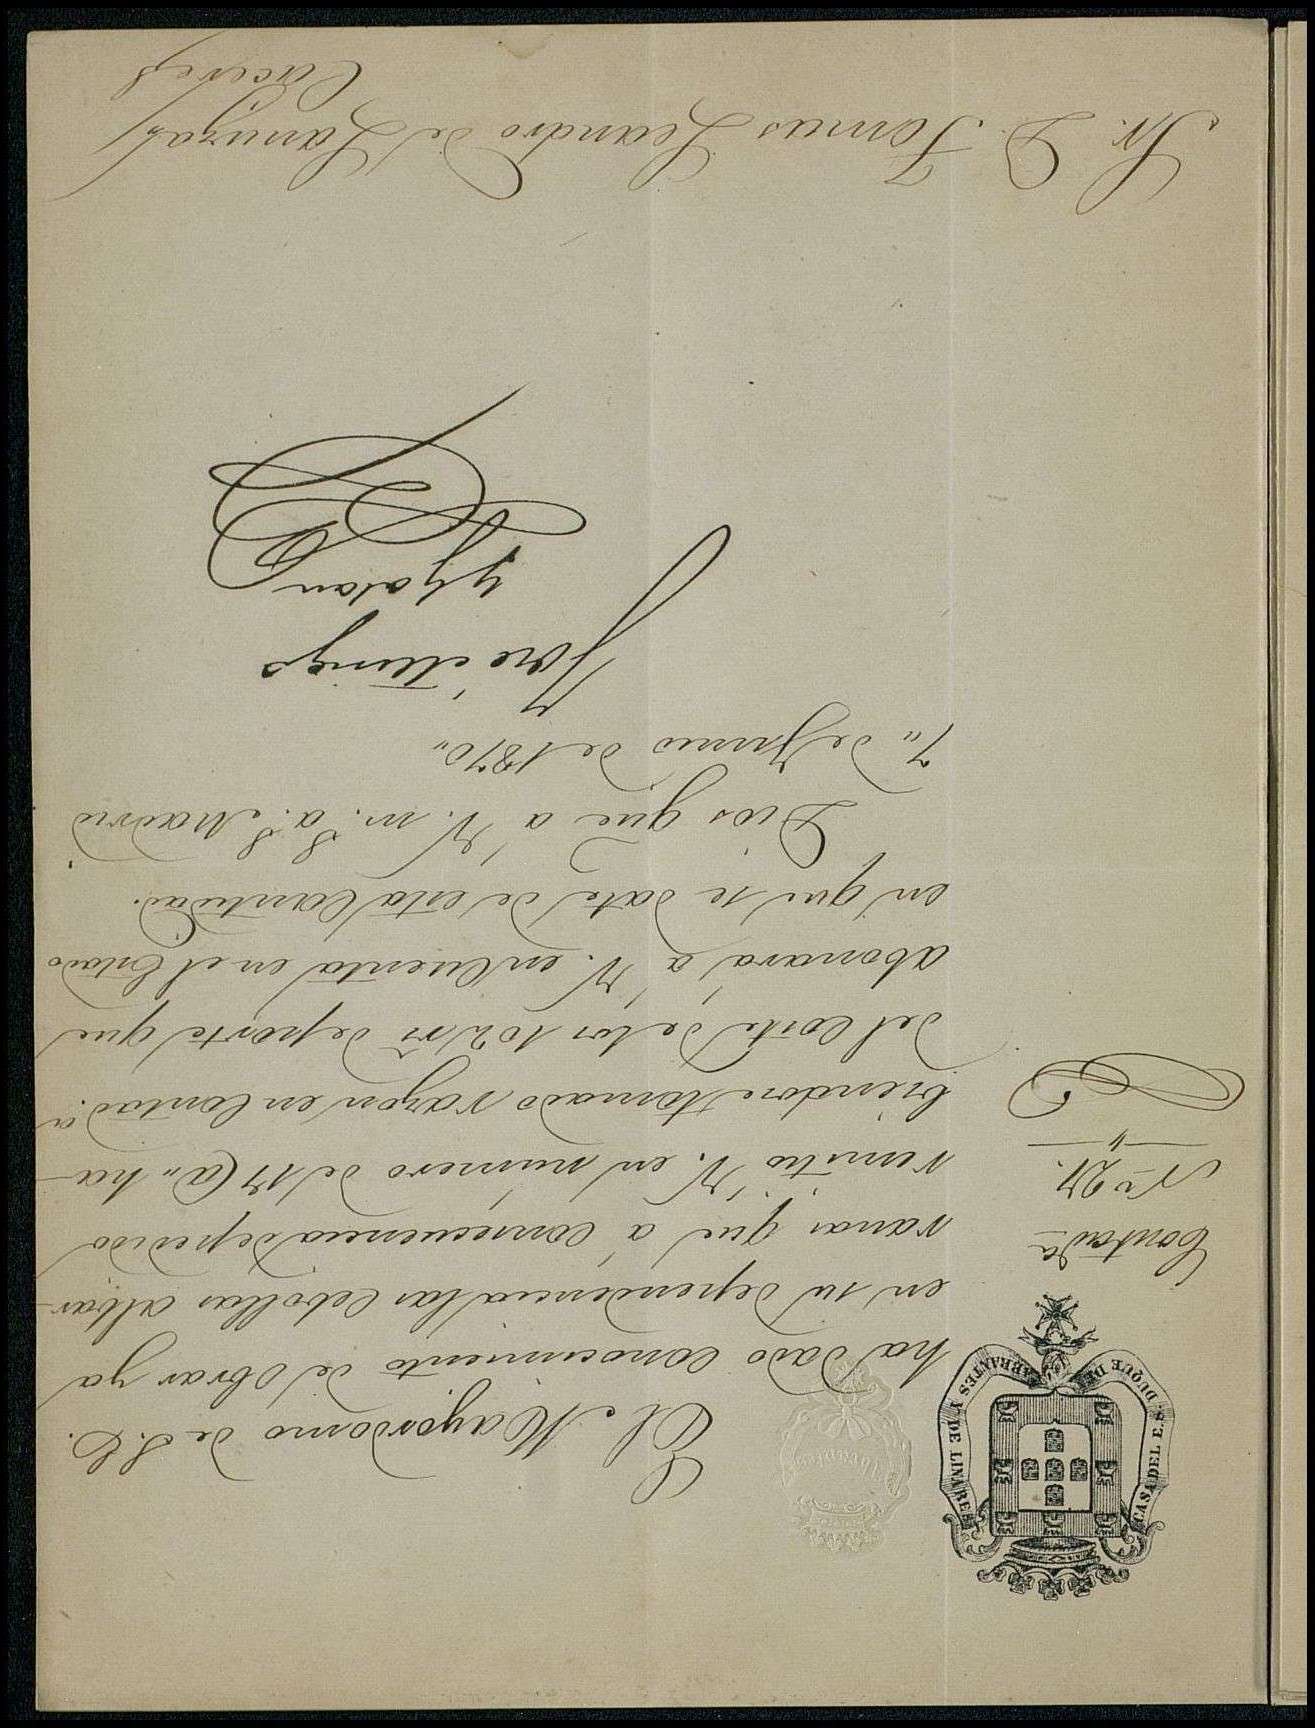 CASA DEL E.S. DUQUE DE ABRANTES Y DE LINARES
Contad.a
N.o 27.
El Mayordomo de S.E.
ha dado conocimiento de obrar ya
en su dependencia las Cebollas albar-
ranas que a consecuencia de pedido
remitió V. en número de 17 @ ha-
biendose tomado razon en Contad.a
del coste de los 102 rs de porte que
abonará a V. en Cuenta en el Estado
en que se date de esta Cantidad.
Dios gue a V. m.s a.s Madrid
7,, de Junio de 1870,,
José
y Galan
Sr. D. Tomas Leandro de Lanuza
Caceres